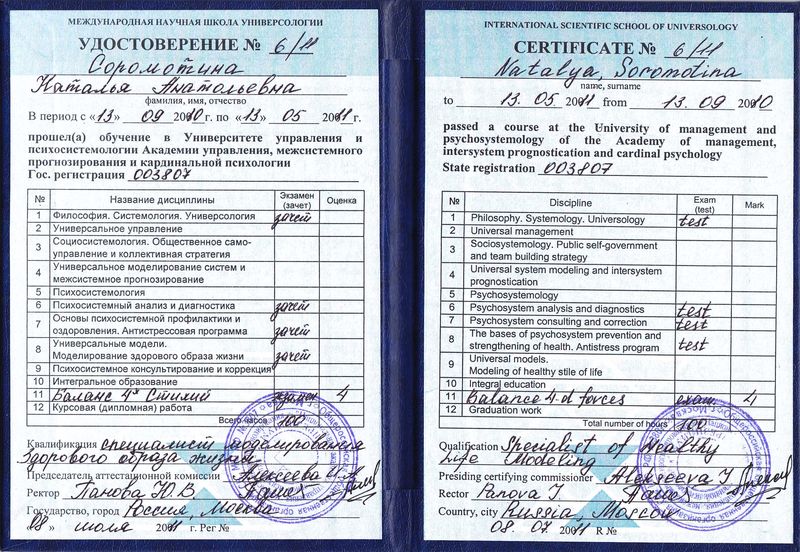 МЕЖДУНАРОДНАЯ НАУЧНАЯ ШКОЛА УНИВЕРСОЛОГИИ
УДОСТОВЕРЕНИЕ № 6/11
Соромотина
Наталья Анатольевна
фамилия, имя, отчество
В период с «13» 09 2010 г. по «13» 05 2011 г.
прошел(а) обучение в Университете управления и
психосистемологии Академии управления, межсистемного
прогнозирования и кардинальной психологии
Гос. регистрация 003807
№ Название дисциплины Экзамен (зачет) Оценка
1 Философия. Системология. Универсология зачет
2 Универсальное управление
3 Социосистемология. Общественное само-
управление и коллективная стратегия
4 Универсальное моделирование систем и
межсистемное прогнозирование
5 Психосистемология
6 Психосистемный анализ и диагностика зачет
7 Основы психосистемной профилактики и
оздоровления. Антистрессовая программа зачет
8 Универсальные модели.
Моделирование здорового образа жизни зачет
9 Психосистемное консультирование и коррекция
10 Интегральное образование
11 Баланс 4х Стихий экзамен 4
12 Курсовая (дипломная) работа
Всего часов 100
Квалификация специалист моделирования
Здорового образа жизни
Председатель аттестационной комиссии Алексеева И.
Ректор Панова Ю.В.
Государство, город Россия, Москва
«08» июля 2011 г. Рег №
INTERNATIONAL SCIENTIFIC SCHOOL OF UNIVERSOLOGY
CERTIFICATE № 6/11
Natalya, Soromotina
name, surname
to 13. 05 2011 from 13. 09 2010
passed a course at the University of management and
psychosystemology of the Academy of management,
intersystem prognostication and cardinal psychology
State registration 003807
№ Discipline Exam (test) Mark
1 Philosophy. Systemology. Universology test
2 Universal management
3 Sociosystemology. Public self-government
and team building strategy
4 Universal system modeling and intersystem
prognostication
5 Psychosystemology
6 Psychosystem analysis and diagnostics test
7 Psychosystem consulting and correction test
8 The bases of psychosystem prevention and
strengthening of health. Antistress program test
9 Universal models.
Modeling of healthy stile of life
10 Integral education
11 Balance 4-d forces exam. 4
12 Graduation work
Total number of hours 100
Qualification Specialist of Healthy
Life Modeling
Presiding certifying commissioner Alekseeva I
Rector Panova J
Country, city Russia, Moscow
08. 07 2011 R №